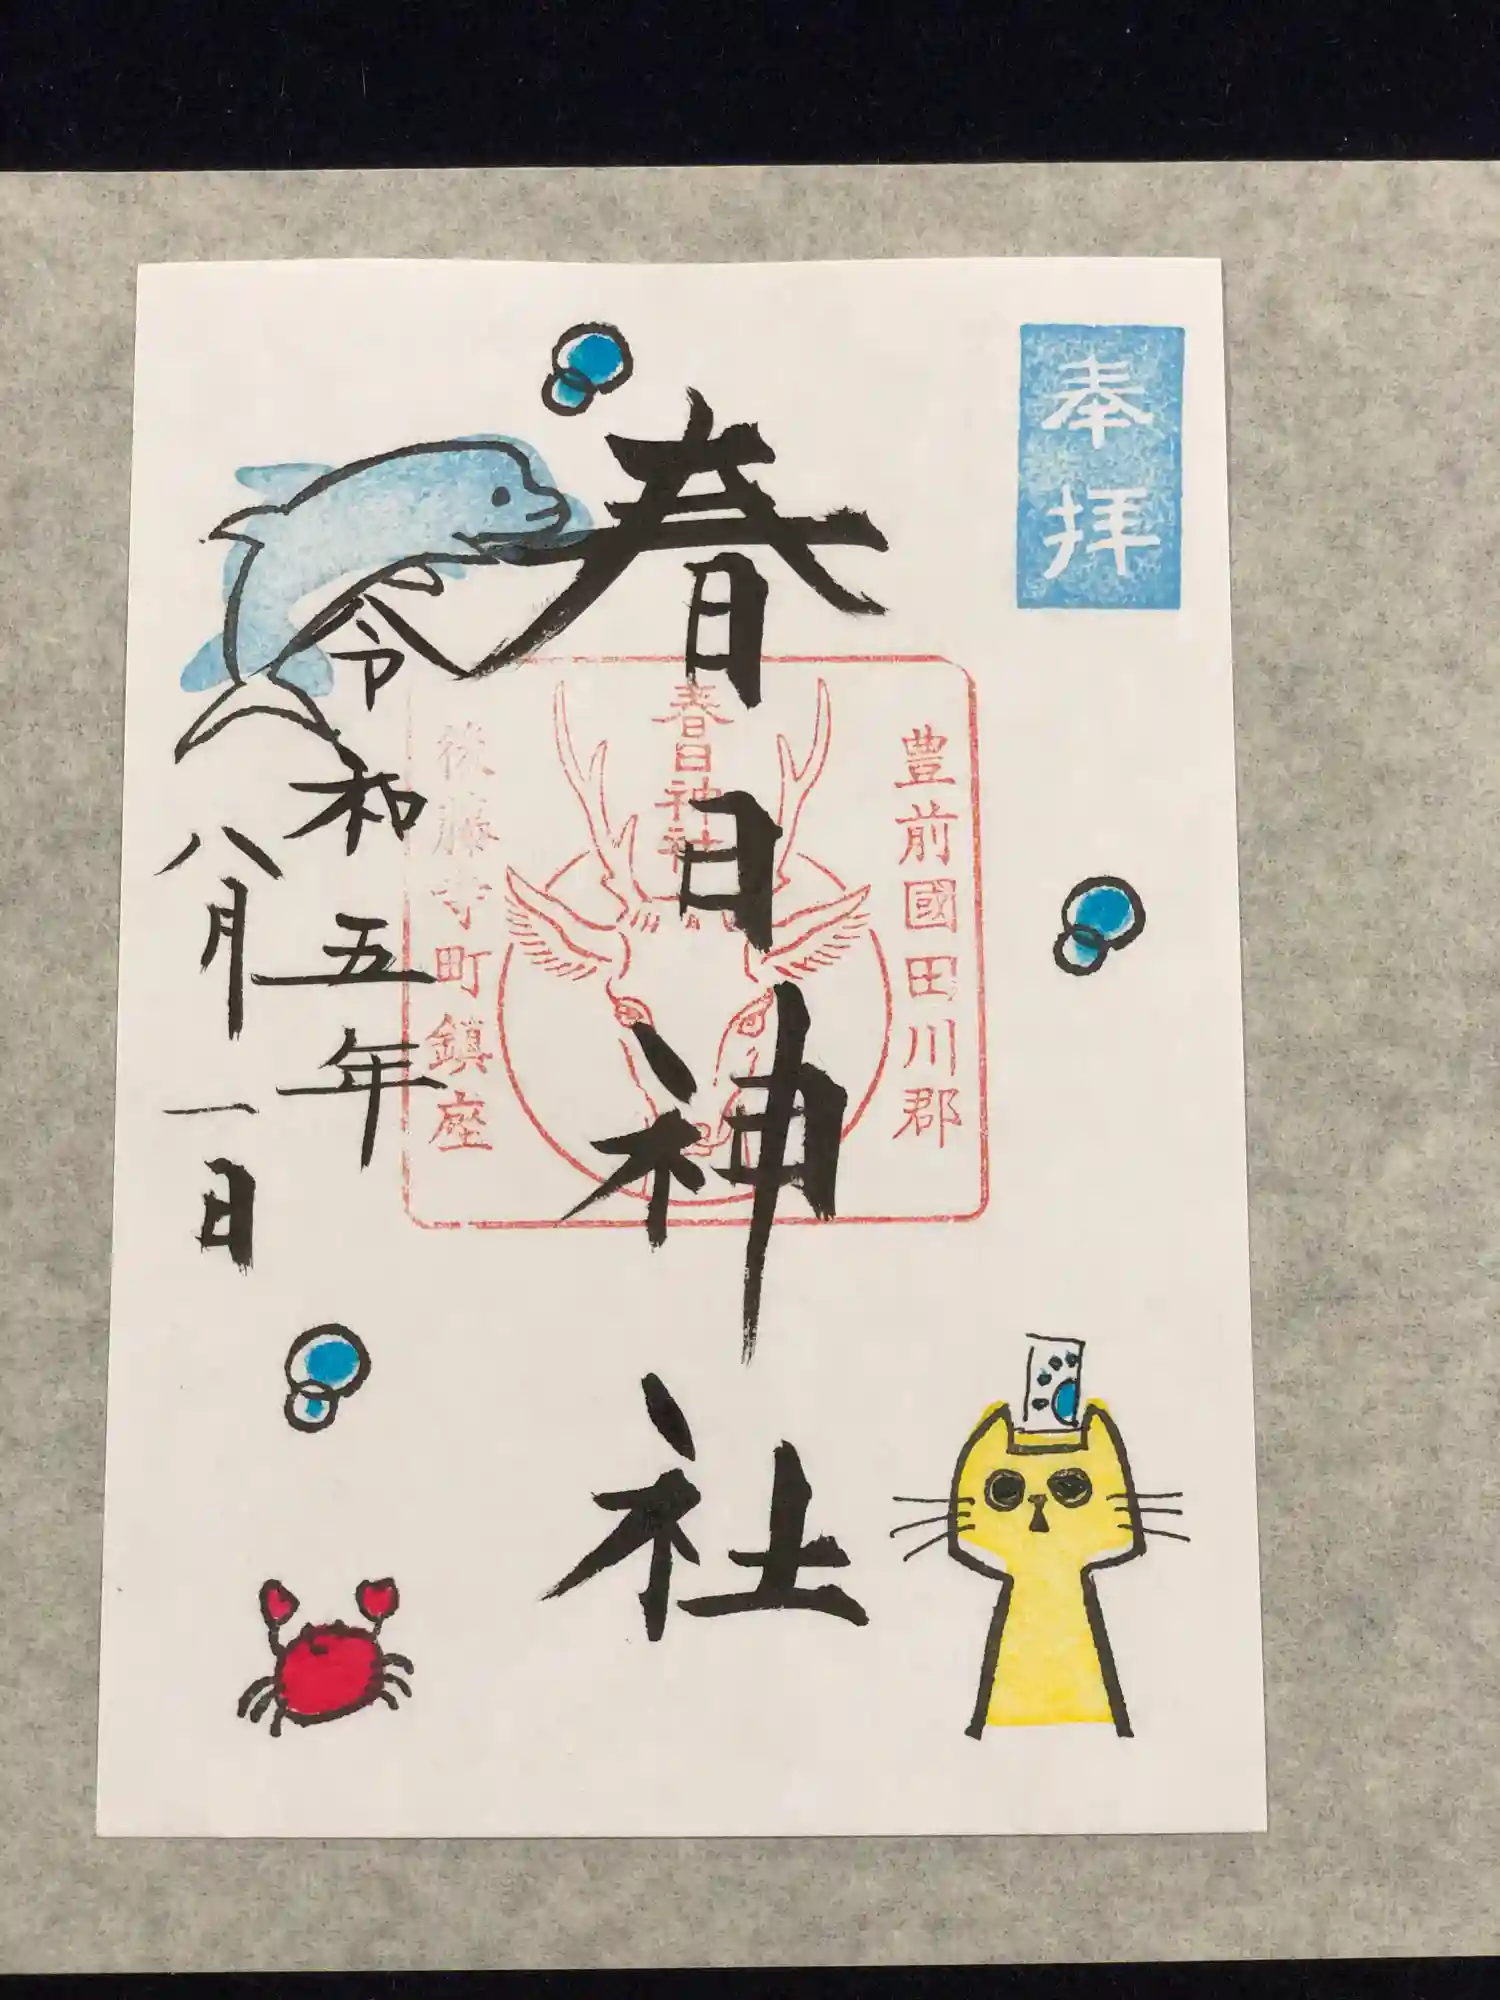 奉拝
春日神社
豊前國田川郡
春日神社
後藤寺町鎮座
令和五年
八月一日